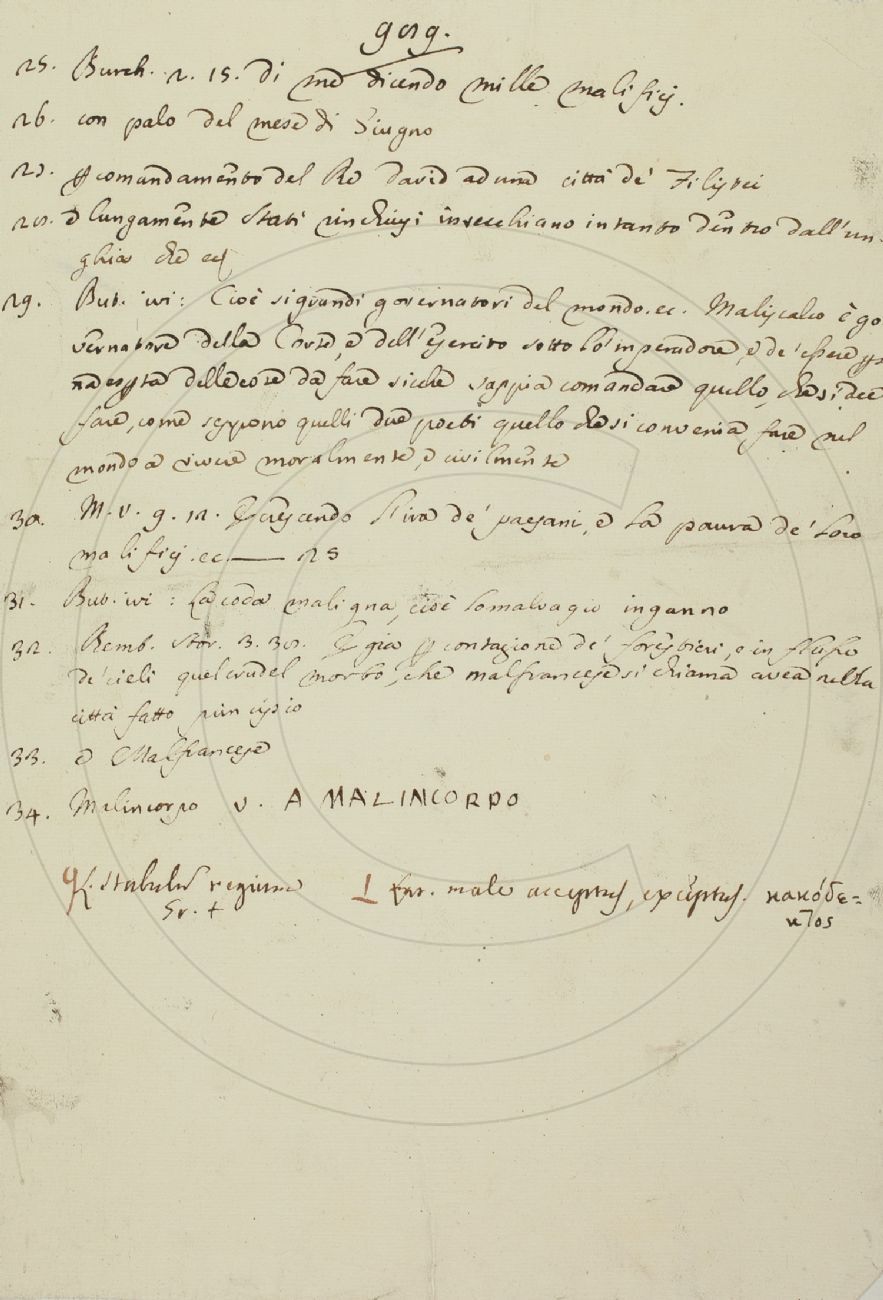 909.
25. Burch. 2. 15. di me dicendo mille malificj.
26. con palo del mese di Giugno
27. ꝑ comandamento del Re David ad una città de' Filistei
28. e lungamente stati rinchiusi invecchiano intanto dentro dall'un-
ghia che ec
29. But. ivi: Cioè sì grandi governatori del mondo. ec. Maliscalco è go
vernatore della Corte, e dell'esercito sotto lo 'mperadore, e de' essere ꝑso
na esperta delle cose da fare sicchè sappia comandare quello, che si dee
fare, come seppono quelli due poeti quello che si convenia fare nel
mondo a vivere moralmente, e civilmente
30. M. V. 9. 12. E crescendo l'ira de' paesani, e la paura de' loro
malificj. ec. — 25
31. But. ivi: La coda maligna, cioè lo malvagio inganno
32. Bemb. Stor. 3. 38. E già ꝑ contagione de' forestieri, e in flusso
de' cieli quel crudel morbo, che malfrancese si chiama avea nella
città fatto principio
33. e Malfrancese
34. Malincorpo v. A MALINCORPO
stabulu regium Gr. +
⊥ male acceptus, exceptus. κακόδε=
κτος